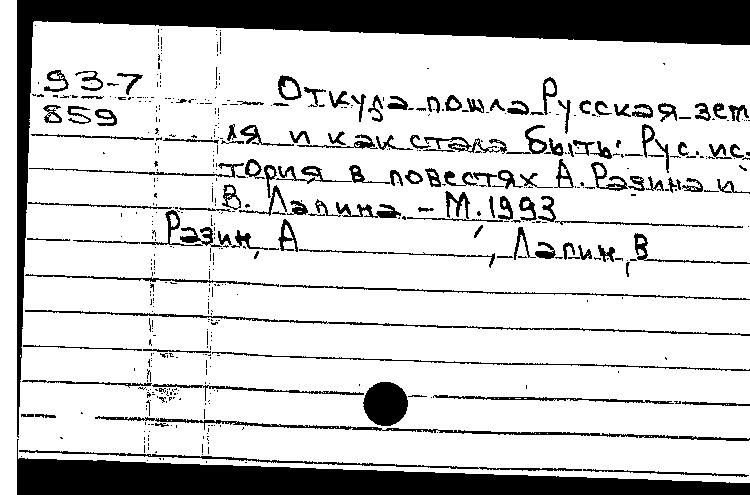 93-7 Откуда пошла Русская зем
859
ля и как стала быть: Рус. ис-
тория в повестях А. Разина и
В. Лапина - М. 1993
Разин, А , Лапин, В